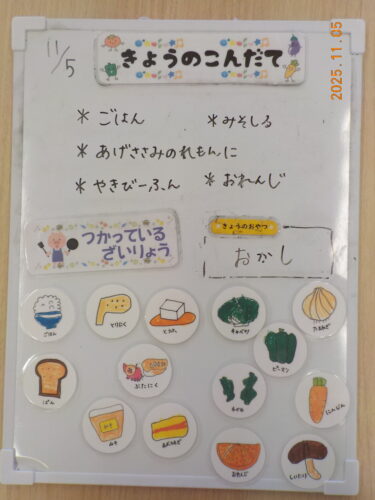 2025.11.05
11/5
きょうのこんだて
* ごはん * みそしる
* あげささみのれもんに
* やきびーふん * おれんじ
つかっている
ざいりょう
きょうのおやつ
おかし
ごはん とりにく とうふ キャベツ たまねぎ
ピーマン
ぱん ぶたにく わかめ にんじん
みそ みそ あぶらあげ おれんじ しいたけ